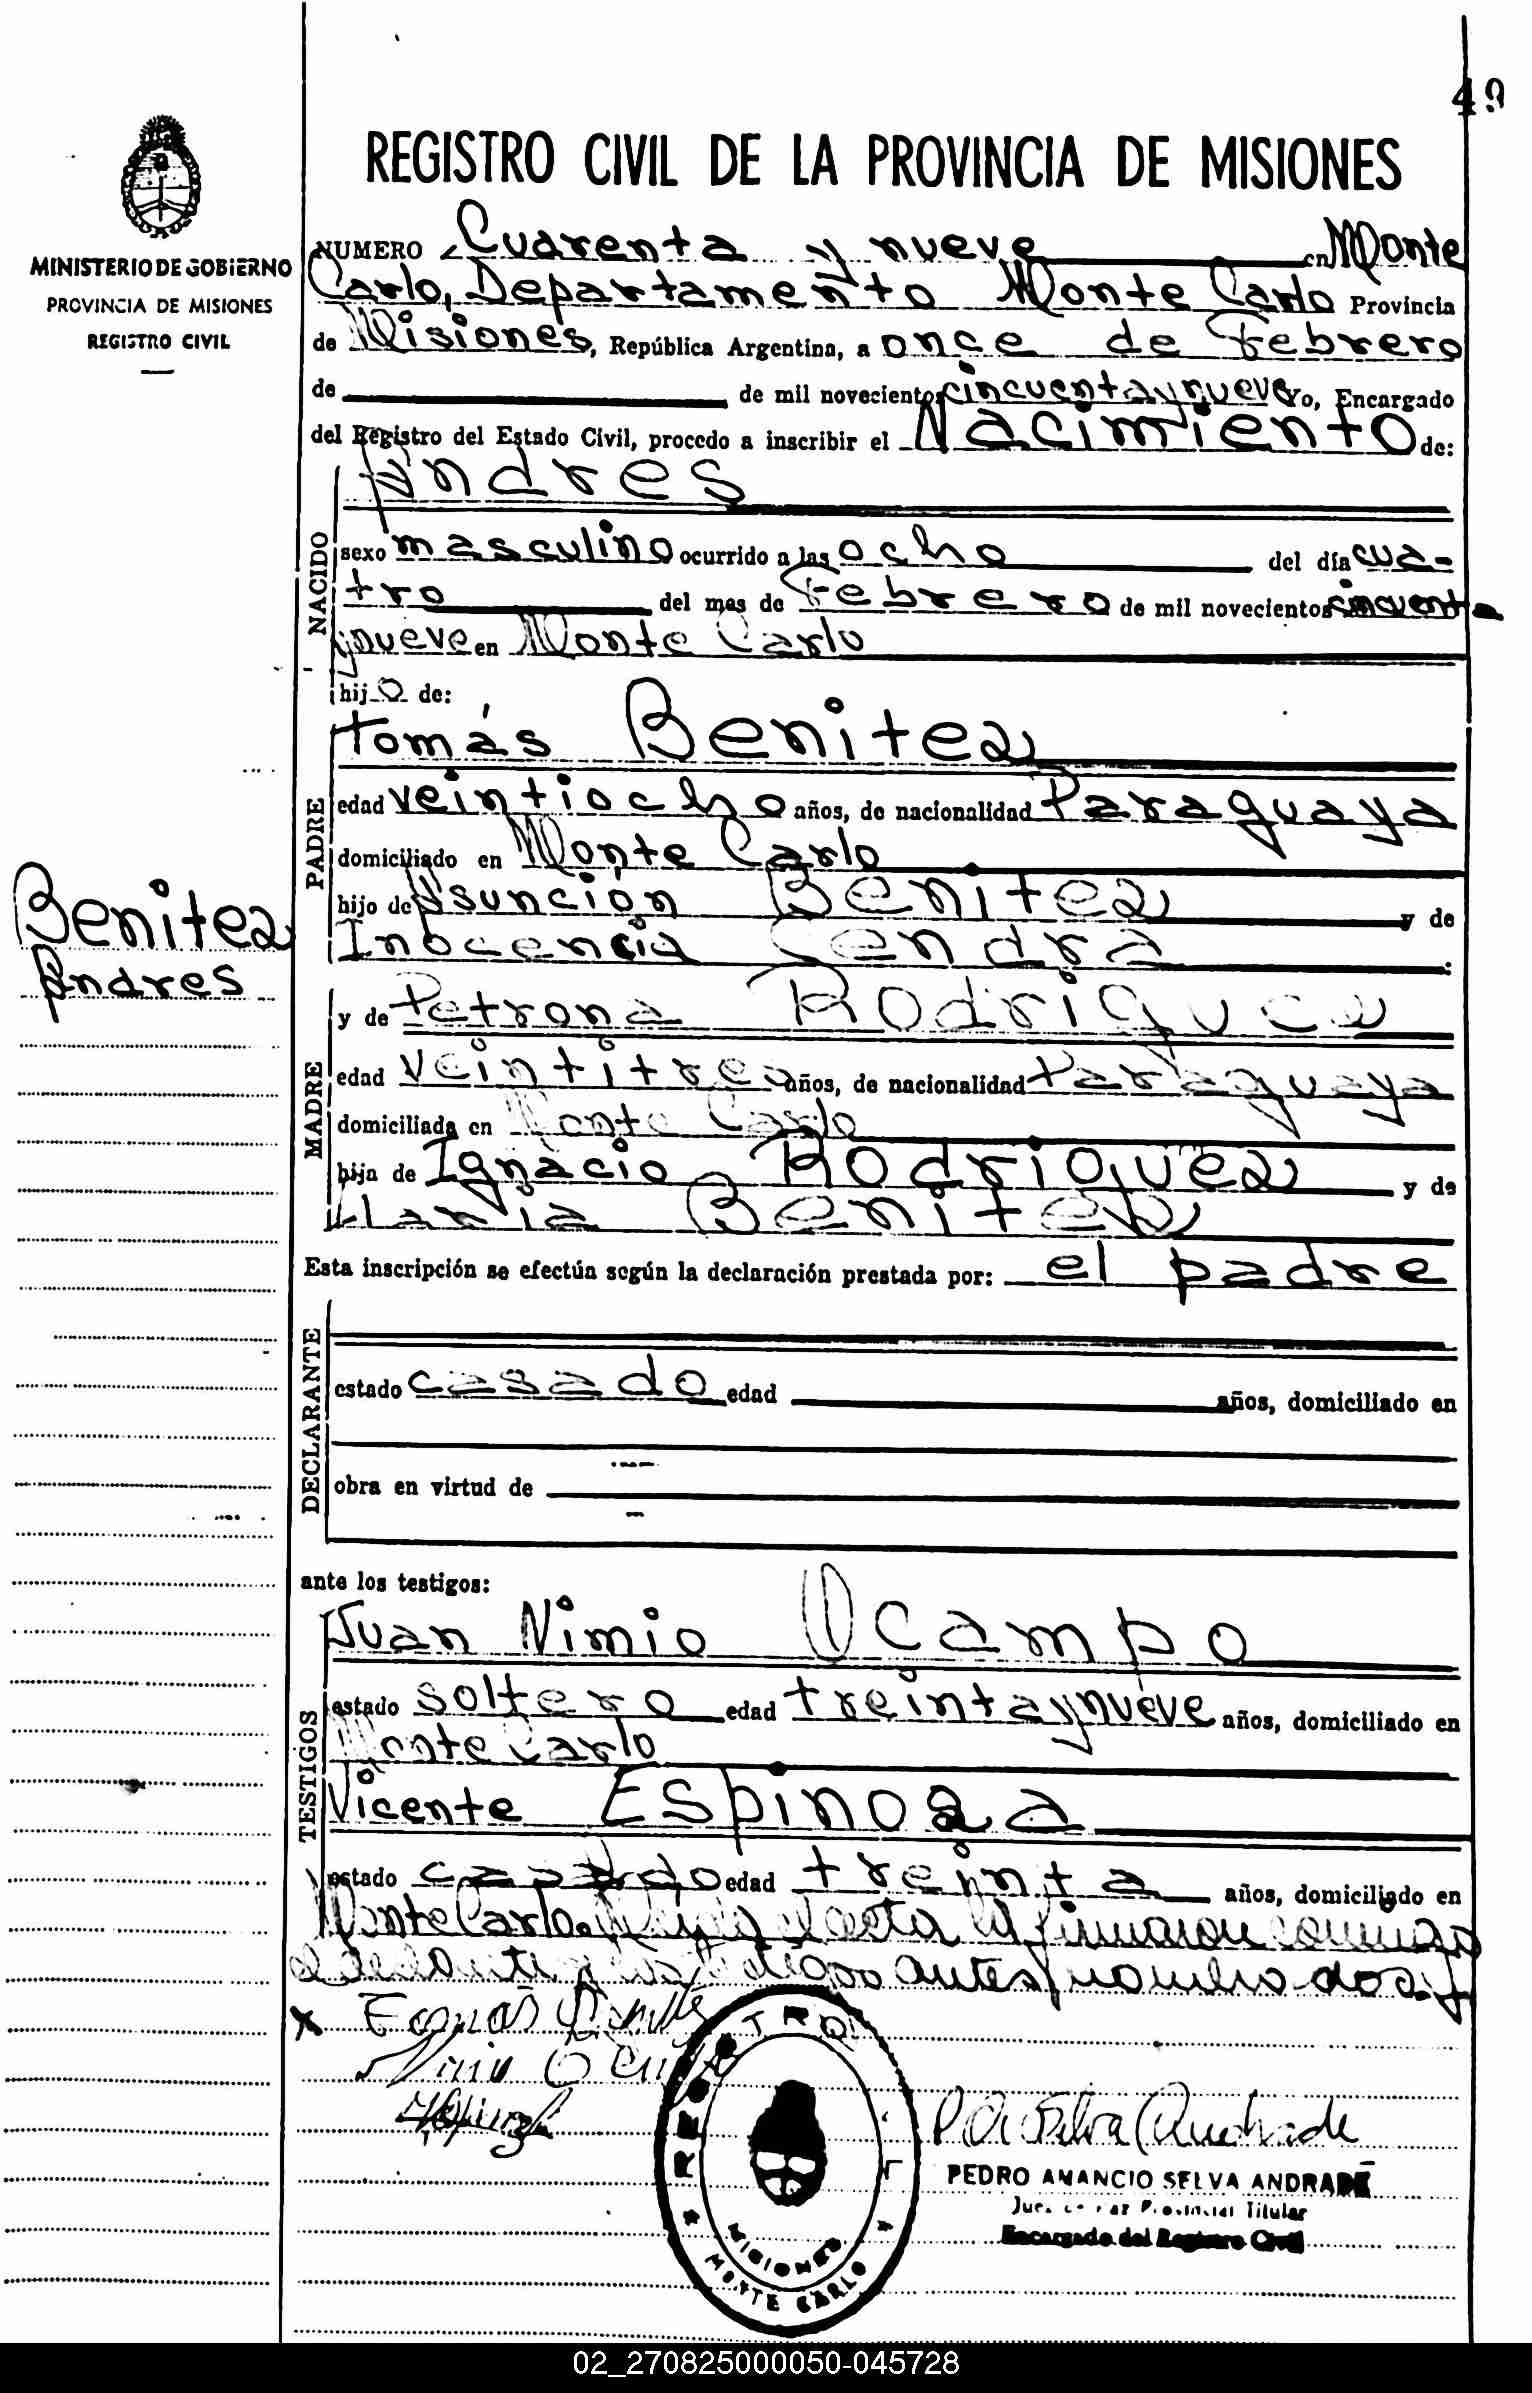 49
REGISTRO CIVIL DE LA PROVINCIA DE MISIONES
MINISTERIO DE GOBIERNO
PROVINCIA DE MISIONES
REGISTRO CIVIL
NUMERO Cuarenta y nueve en Monte
Carlo, Departamento Monte Carlo Provincia
de Misiones, República Argentina, a once de Febrero
de de mil novecientos cincuenta y nueve Yo, Encargado
del Registro del Estado Civil, procedo a inscribir el Nacimiento de:
NACIDO
Andres
sexo masculino ocurrido a las ocho del día cua-
tro del mes de Febrero de mil novecientos cincuenta
y nueve en Monte Carlo
hijo de:
PADRE
Tomás Benitez
edad veintiocho años, de nacionalidad Paraguaya
domiciliado en Monte Carlo
hijo de Asunción Benitez y de
Inocencia Cendra :
Benitez
Andres
MADRE
y de Petrona Rodriguez
edad veintitres años, de nacionalidad Paraguaya
domiciliada en Monte Carlo
hija de Ignacio Rodriguez y de
Maria Benitez
Esta inscripción se efectúa según la declaración prestada por: el padre
DECLARANTE
estado casado edad años, domiciliado en
obra en virtud de
ante los testigos:
TESTIGOS
Juan Nimio Ocampo
estado soltero edad treinta y nueve años, domiciliado en
Monte Carlo
Vicente Espinoza
estado casado edad treinta años, domiciliado en
Monte Carlo. el acta la firmaron conmigo
el y los testigos antes nombrados.
x Tomás Benitez
REGISTRO CIVIL
MISIONES
MONTE CARLO
P A Selva Andrade
PEDRO AMANCIO SELVA ANDRADE
Juez de Paz Provincial Titular
Encargado del Registro Civil
02_270825000050-045728